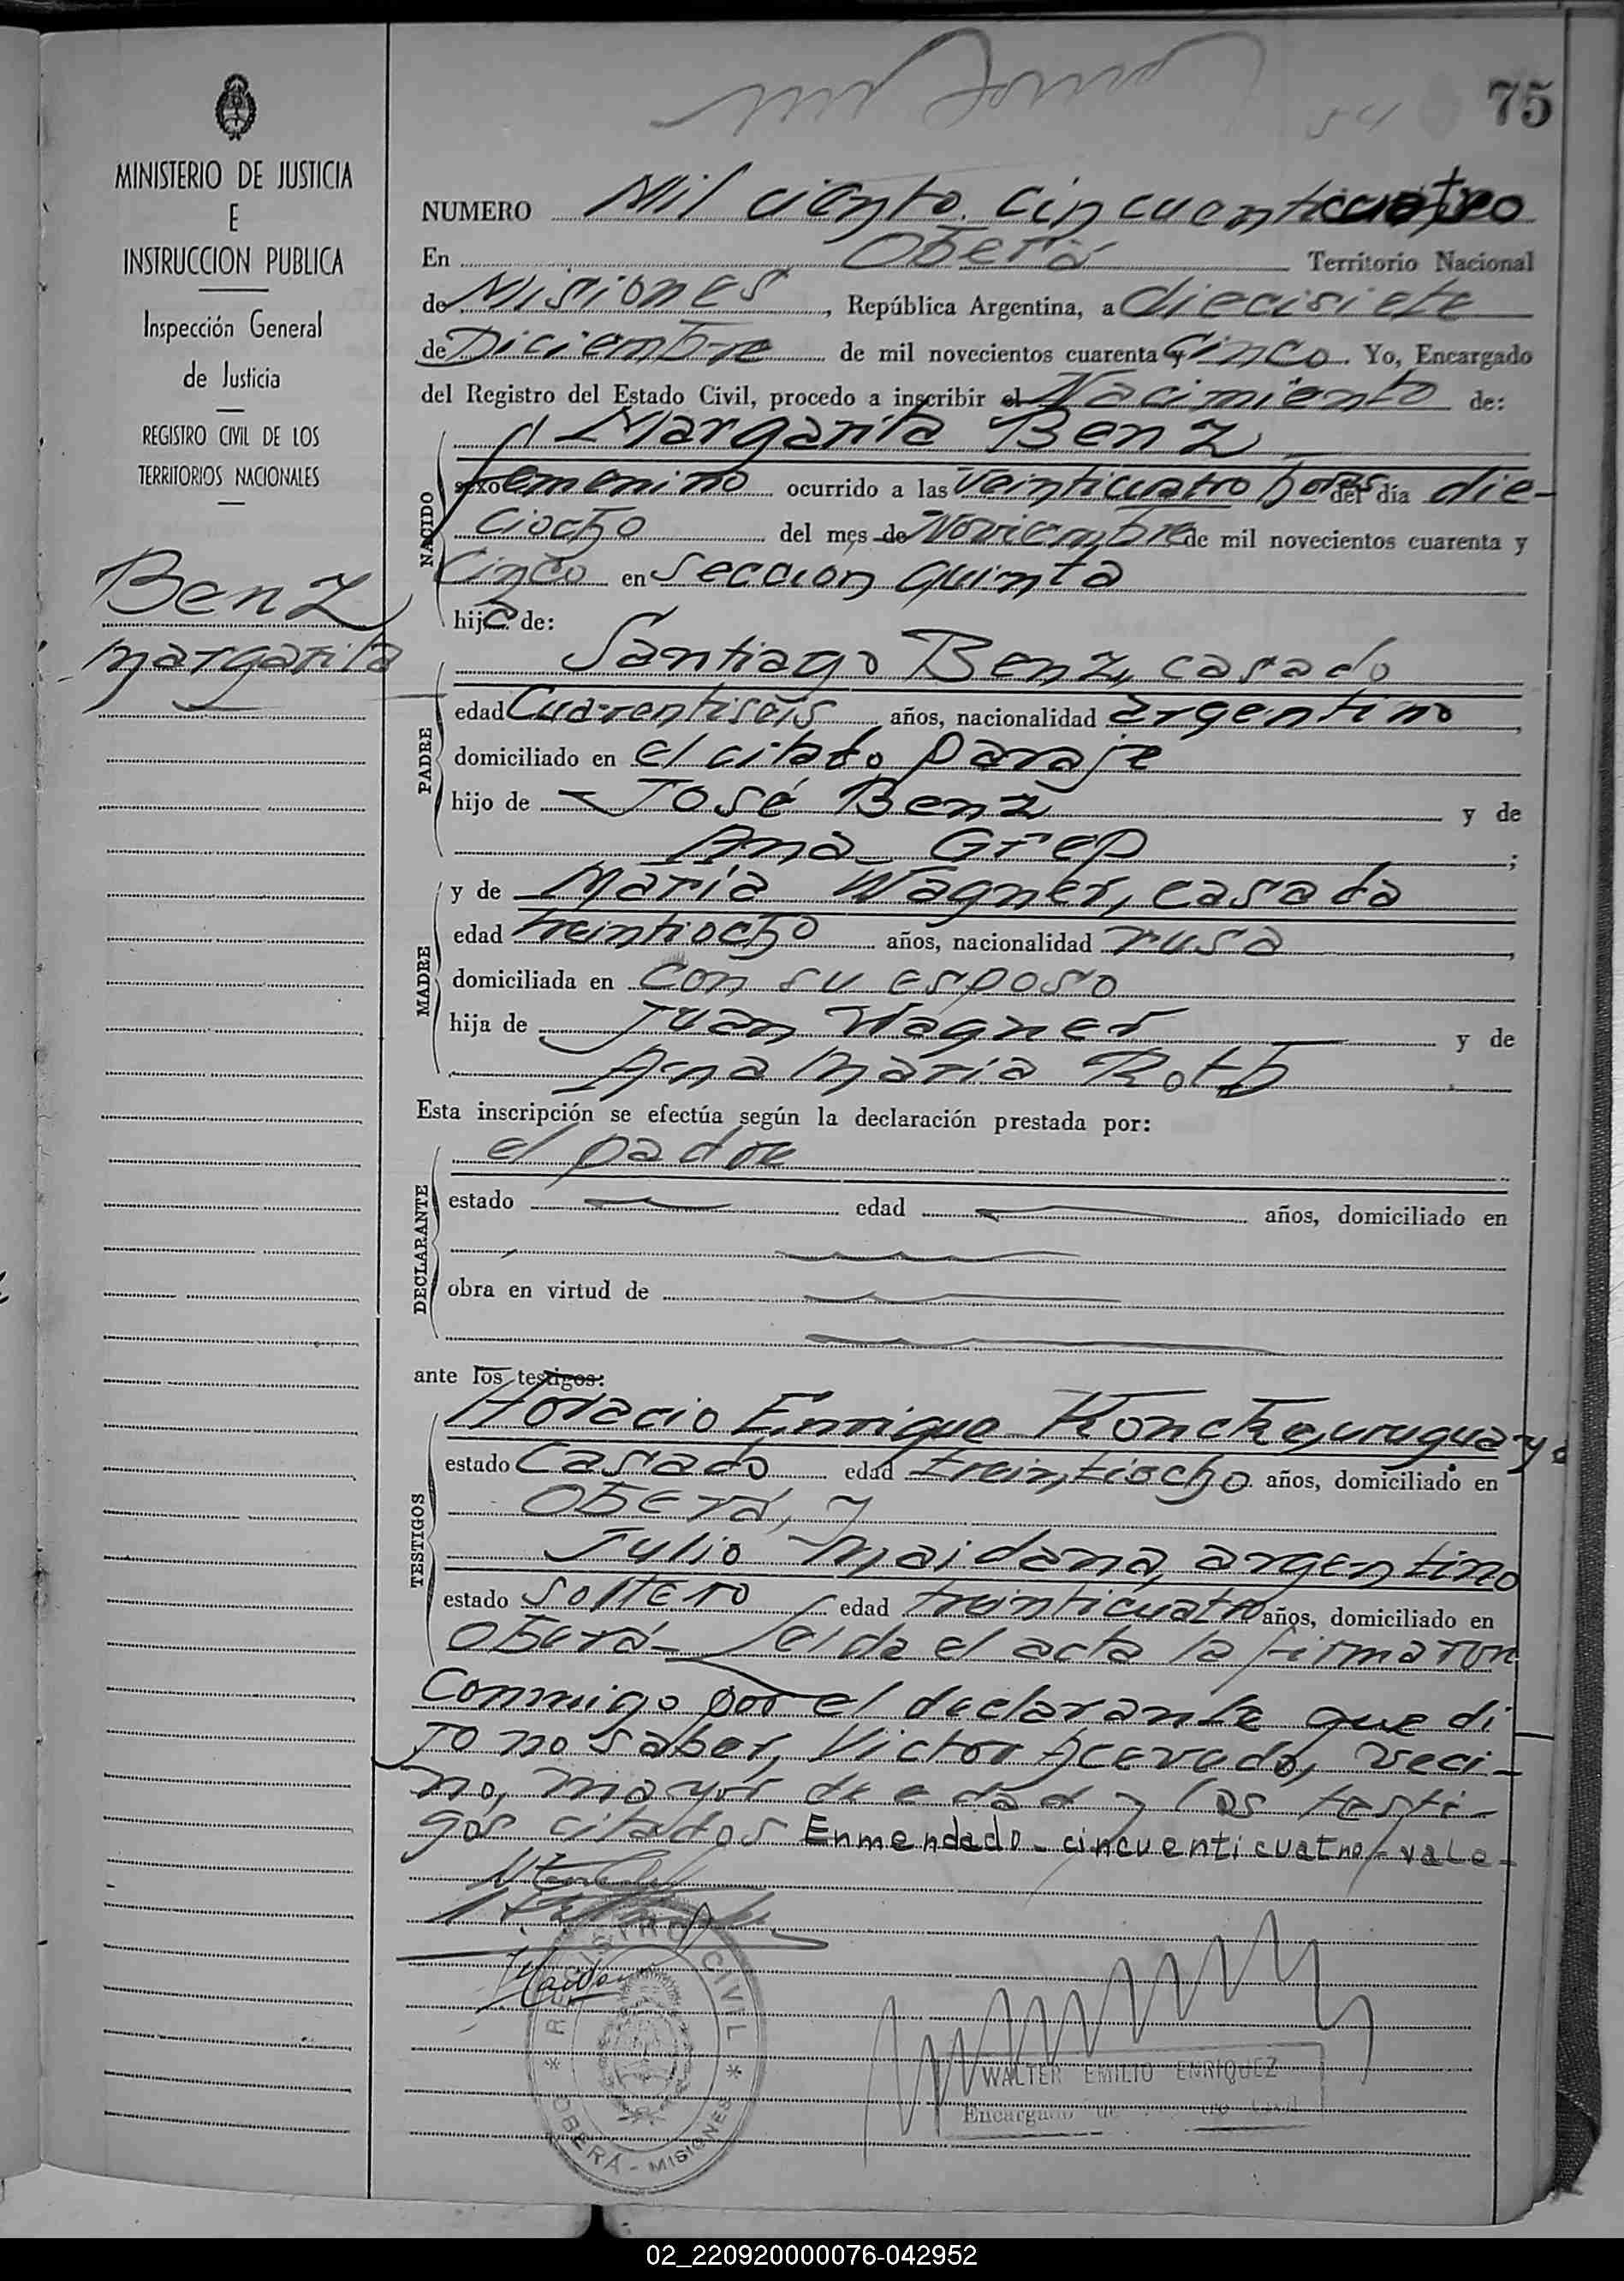 75
54
MINISTERIO DE JUSTICIA
E
INSTRUCCION PUBLICA
Inspección General
de Justicia
REGISTRO CIVIL DE LOS
TERRITORIOS NACIONALES
Benz
Margarita
NUMERO Mil ciento cincuenticuatro
En Oberá Territorio Nacional
de Misiones, República Argentina, a diecisiete
de Diciembre de mil novecientos cuarenta y cinco. Yo, Encargado
del Registro del Estado Civil, procedo a inscribir el Nacimiento de:
NACIDO
Margarita Benz
sexo femenino ocurrido a las veinticuatro horas del día die-
ciocho del mes de Noviembre de mil novecientos cuarenta y
cinco en Seccion quinta
hija de:
PADRE
Santiago Benz, casado
edad Cuarentiseis años, nacionalidad argentino
domiciliado en el citado paraje
hijo de José Benz y de
Ana Grep;
MADRE
y de Maria Wagner, casada
edad treintiocho años, nacionalidad rusa
domiciliada en con su esposo
hija de Juan Wagner y de
Ana Maria Roth
Esta inscripción se efectúa según la declaración prestada por:
DECLARANTE
el padre
estado edad años, domiciliado en
obra en virtud de
ante los testigos:
TESTIGOS
Horacio Enrique Koncke, uruguayo
estado Casado edad treintiocho años, domiciliado en
Oberá, y
Julio Maidana, argentino
estado soltero edad treinticuatro años, domiciliado en
Oberá- Leida el acta la firmaron
Conmigo por el declarante que di
jo no saber, Victor Acevedo, veci-
no, mayor de edad y los testi-
gos citados Enmendado- cincuenticuatro- vale-
REGISTRO CIVIL
OBERÁ - MISIONES
WALTER EMILIO ENRIQUEZ
Encargado
02_220920000076-042952